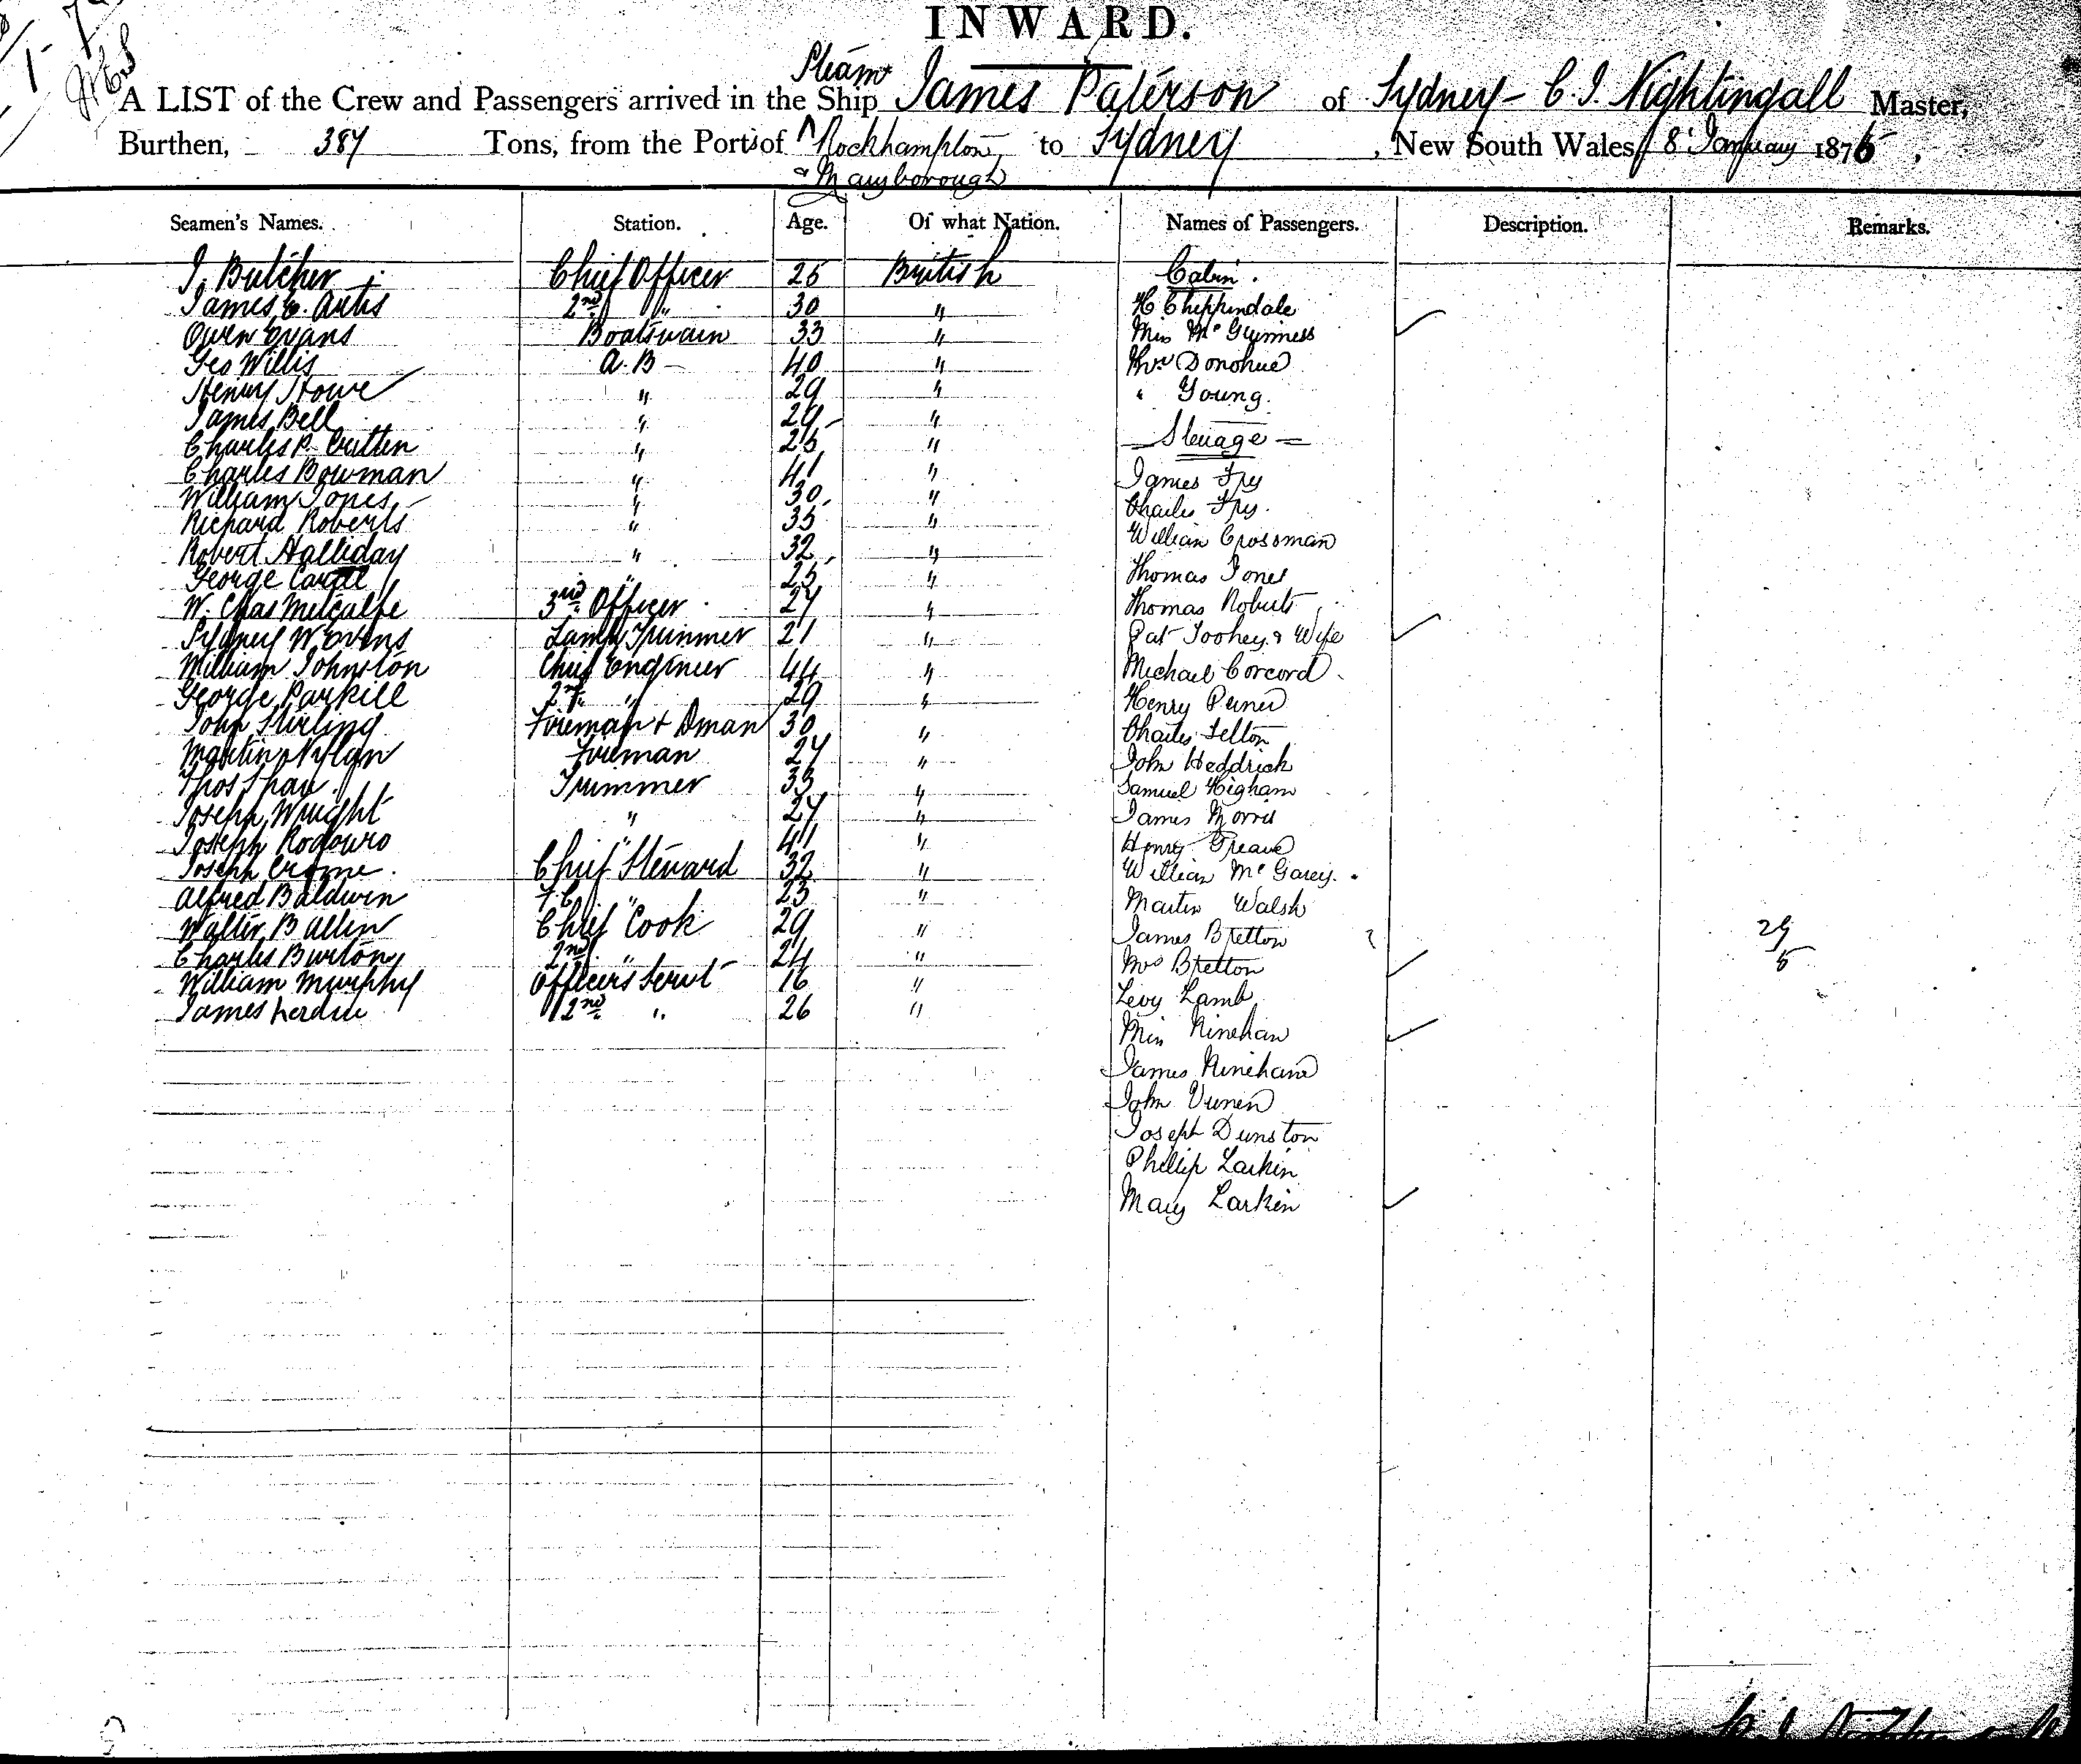 INWARD.
Steam
A LIST of the Crew and Passengers arrived in the Ship James Paterson of Sydney - C. I. Nightingall Master,
Burthen, 387 Tons, from the Ports of Rockhampton to Sydney, New South Wales, 8 January 1876
& Maryborough
Seamen's Names. Station. Age. Of what Nation. Names of Passengers. Description. Remarks.
J. Butcher Chief Officer 25 British Cabin.
James C. Artis 2nd " 30 " H Chippindale
Owen Evans Boatswain 33 " Miss McGuinness
Geo Willis A.B 40 " Donohue
Henry Howe " 29 " " Young.
James Bell " 29 "
Charles P. " 25 " Steerage
Charles Bowman " 41 " James Fry
William Jones " 30 " Charles Fry.
Richard Roberts " 35 " William Crossman
Robert Halliday " 32 "
George " 25 " Thomas Jones
W. Chas Metcalfe 3rd Officer 27 " Thomas Roberts
Sydney W Evens Lamp Trimmer 21 " Pat Toohey & Wife
William Johnston Chief Engineer 44 " Michael Corcord
George Parkill 2nd " 29 " Henry
John Stirling Fireman & Dman 30 " Charles Felton
Martin Nylan Fireman 27 " John Heddrick
Thos Shaw Trimmer 35 " Samuel Higham
Joseph Wright " 27 " James Morris
Joseph Rodouro " 41 " Henry Greave
Joseph Crome. Chief Steward 32 " William McGarey.
Alfred Baldwin F.C " 23 " Martin Walsh
Walter B Allen Chief Cook 29 " James Bretton
Charles Burton 2nd " 24 " Mrs Bretton
William Murphy Officers Servt 16 " Levy Lamb
James 2nd " 26 " Miss Ninehan
James Ninehan
John
Joseph Dunston
Phillip Larkin
Mary Larkin
29
5